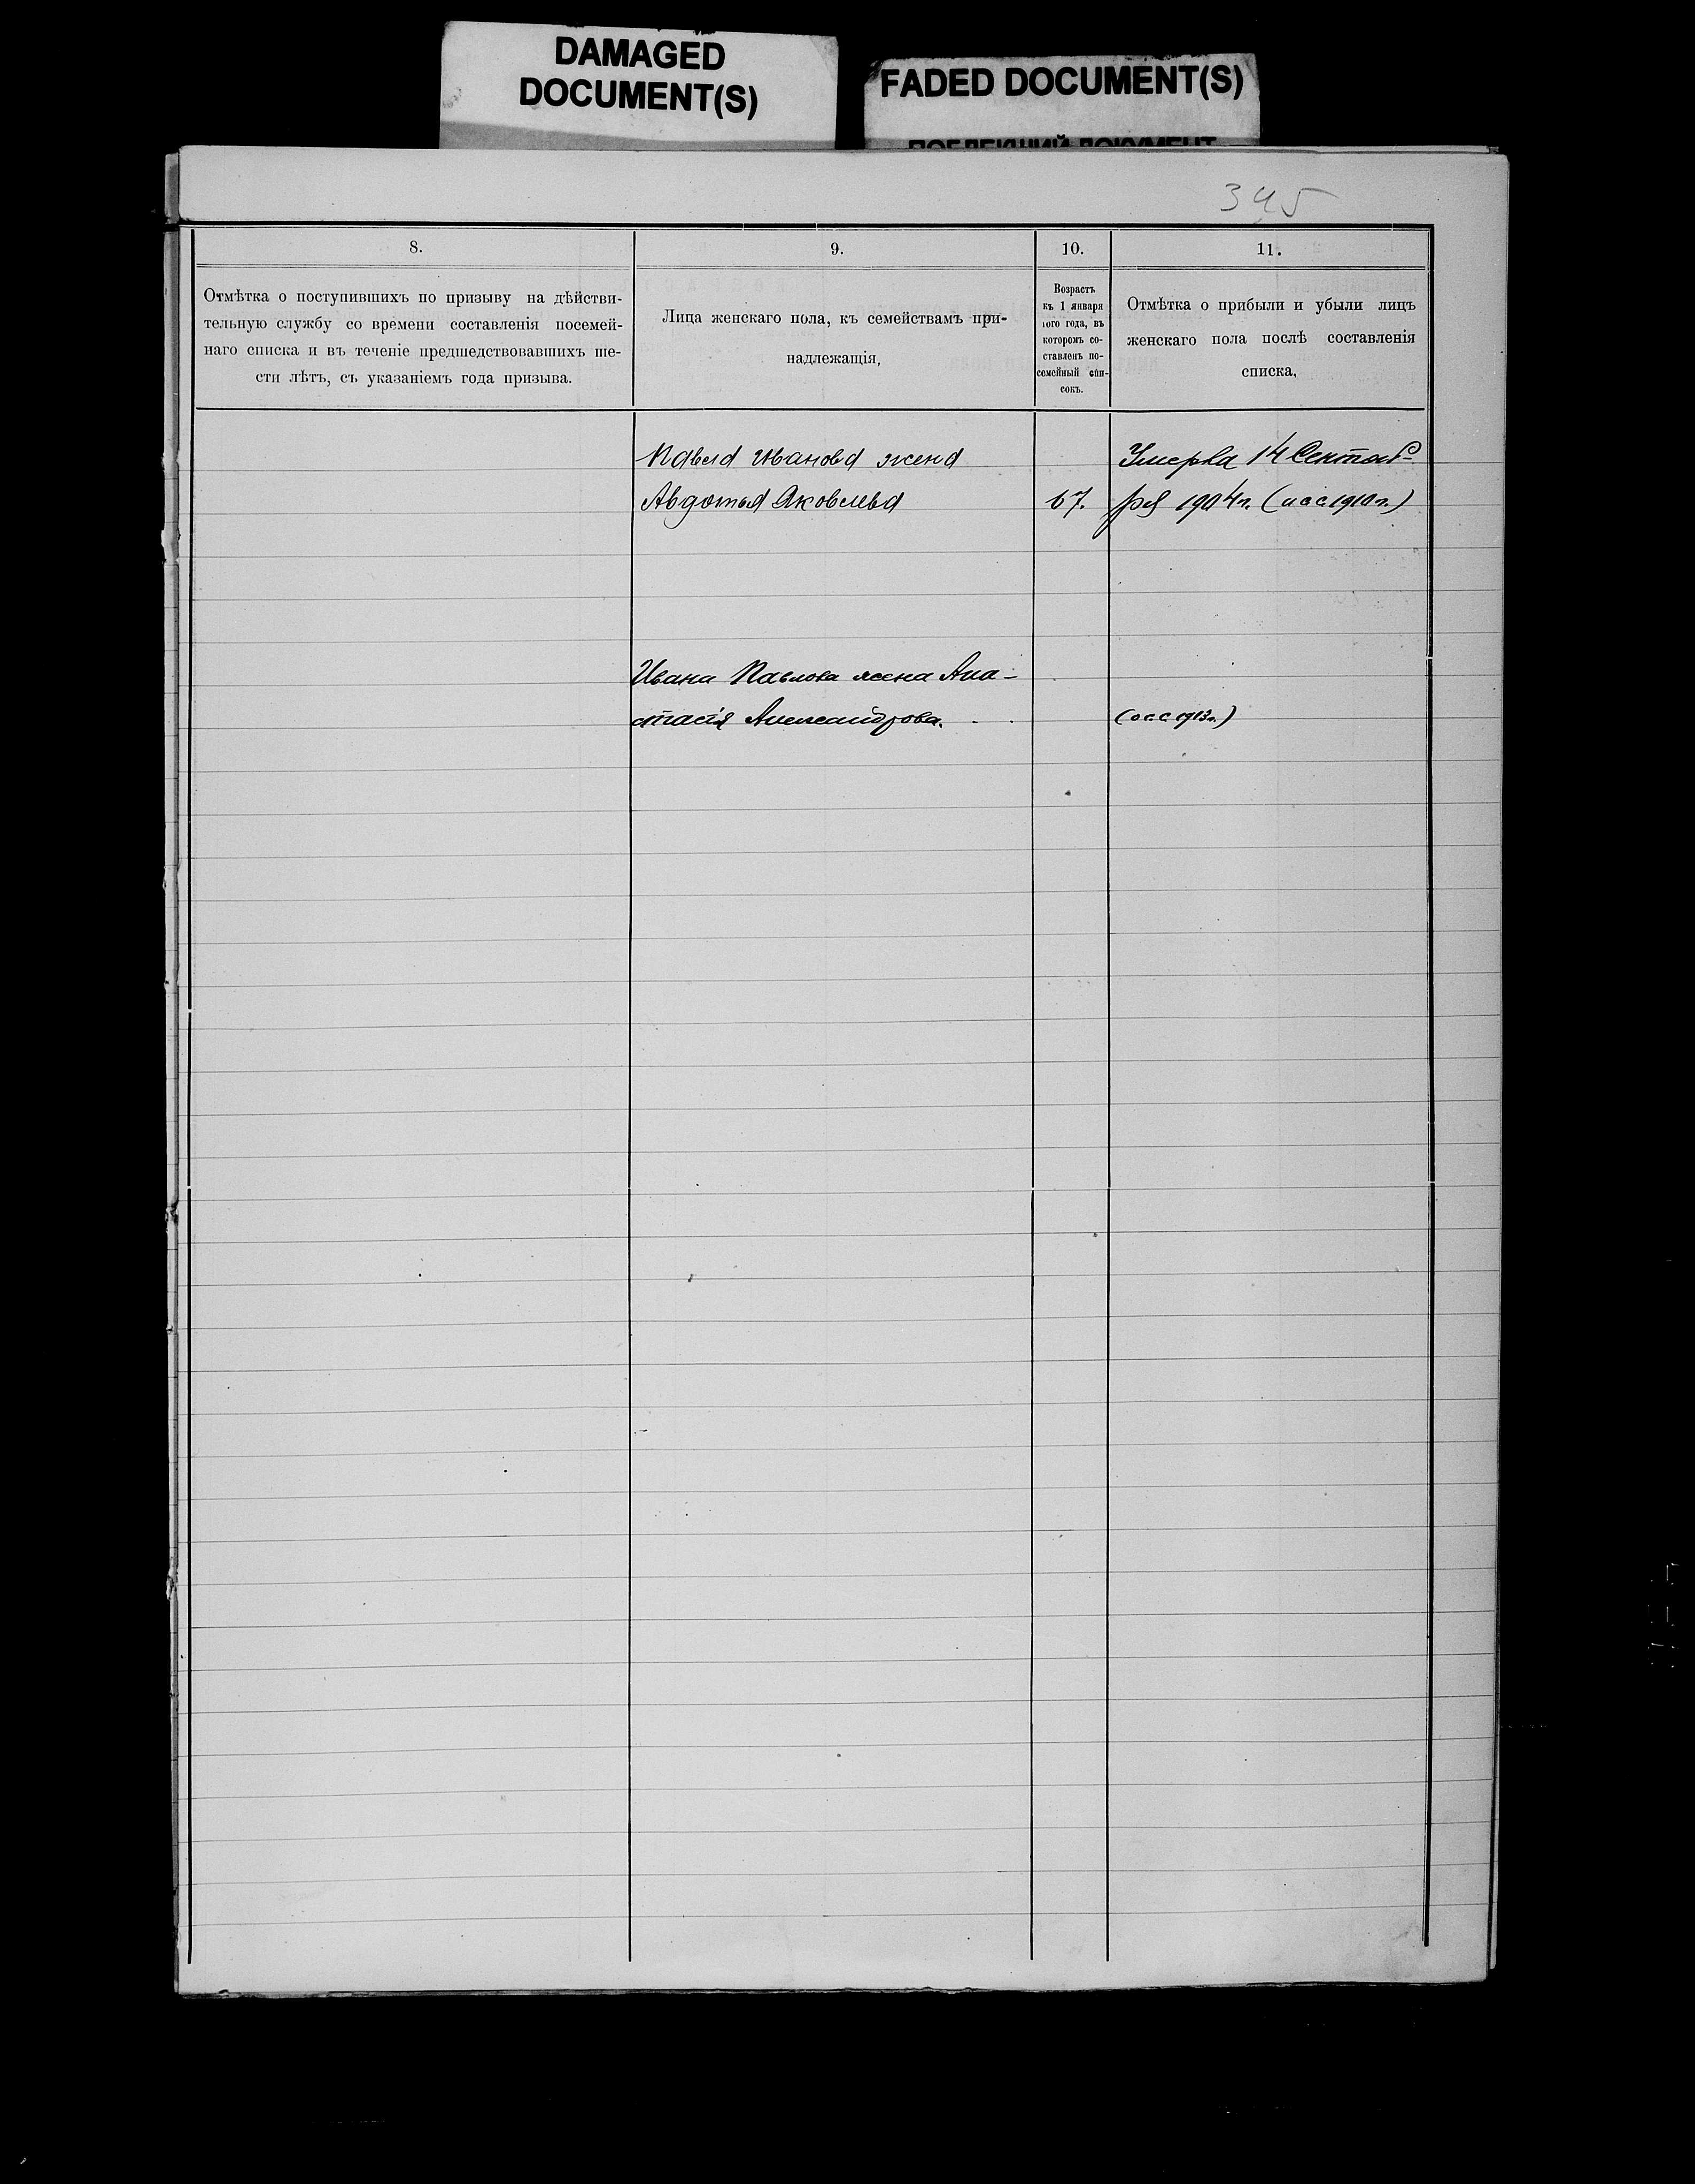 DAMAGED
DOCUMENT(S)
FADED DOCUMENT(S)
ПОБЛЕКШИЙ ДОКУМЕНТ
345
8.
9.
10.
11.
Отмѣтка о поступившихъ по призыву на дѣйстви-
тельную службу со времени составленія посемей-
наго списка и въ теченіе предшедствовавшихъ ше-
сти лѣтъ, съ указаніемъ года призыва.
Лица женскаго пола, къ семействамъ при-
надлежащія,
Возрастъ
къ 1 января
того года, въ
которомъ со-
ставленъ по-
семейный спи-
сокъ.
Отмѣтка о прибыли и убыли лицъ
женскаго пола послѣ составленія
списка,
Павла Иванова жена
Авдотья Яковлева
67.
Умерла 14 Сентяб-
ря 1904 г. (ис с 1910 г.)
Ивана Павлова жена Ана-
стасія Александрова.
(о с.с. 1913 г.)